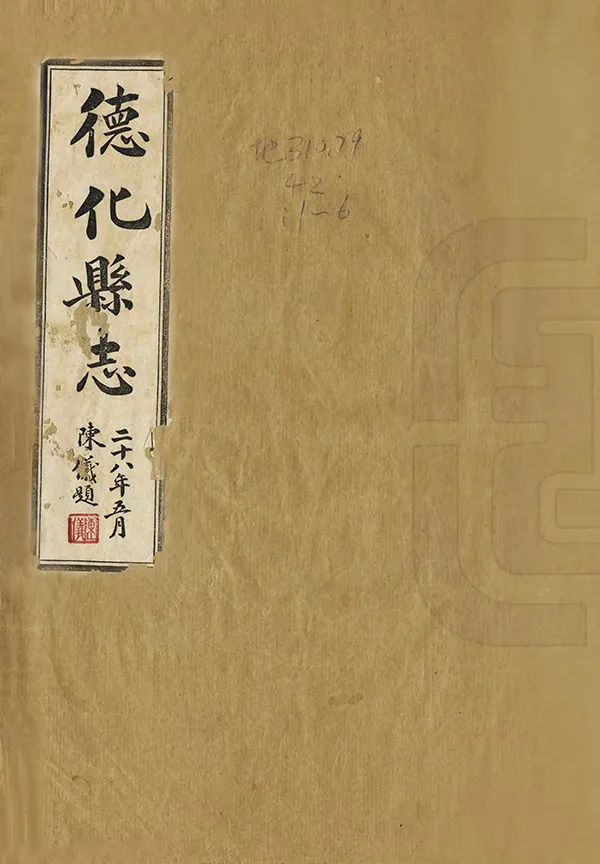 德化縣志
二十八年五月
陳儀題
地310.79
42
:1~6